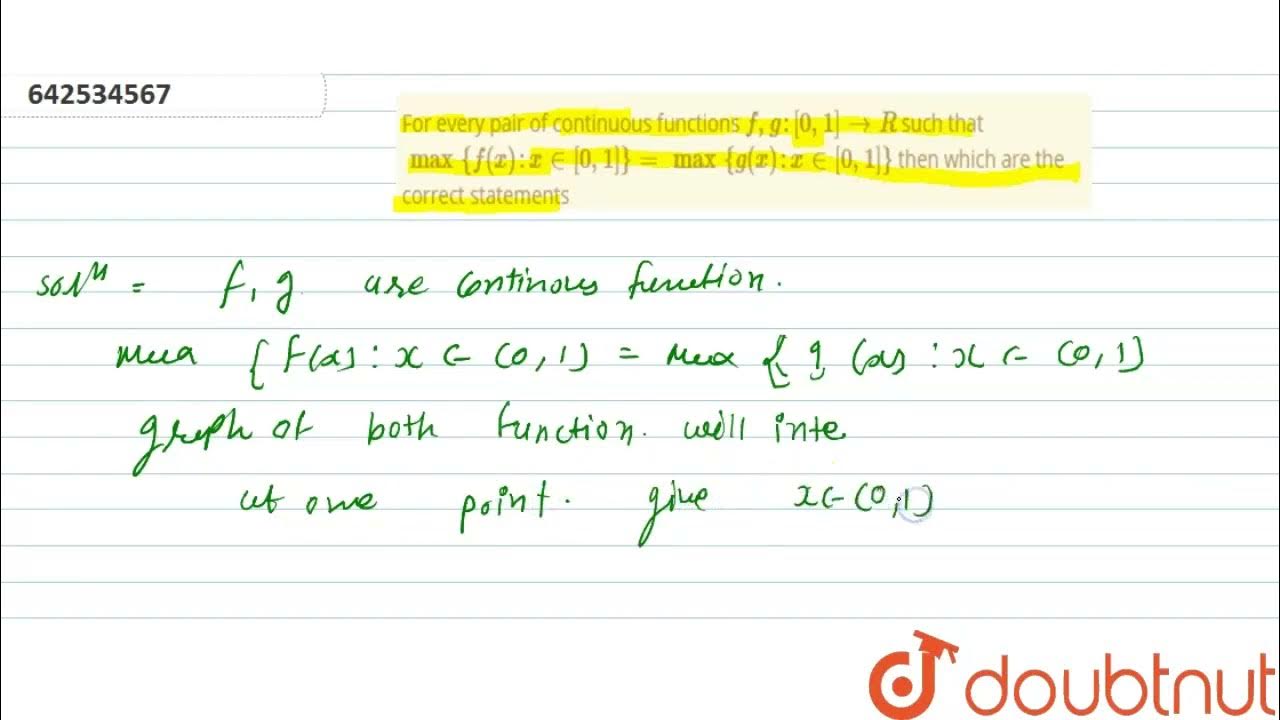 642534567
For every pair of continuous functions f, g : [0, 1] → R such that
max {f(x) : x ∈ [0, 1]} = max {g(x) : x ∈ [0, 1]} then which are the
correct statements
solⁿ = f, g are continous function.
max {f(x) : x ∈ [0, 1] = max {g(x) : x ∈ [0, 1]
graph of both function. will inte
at one point. give x ∈ [0, 1]
doubtnut